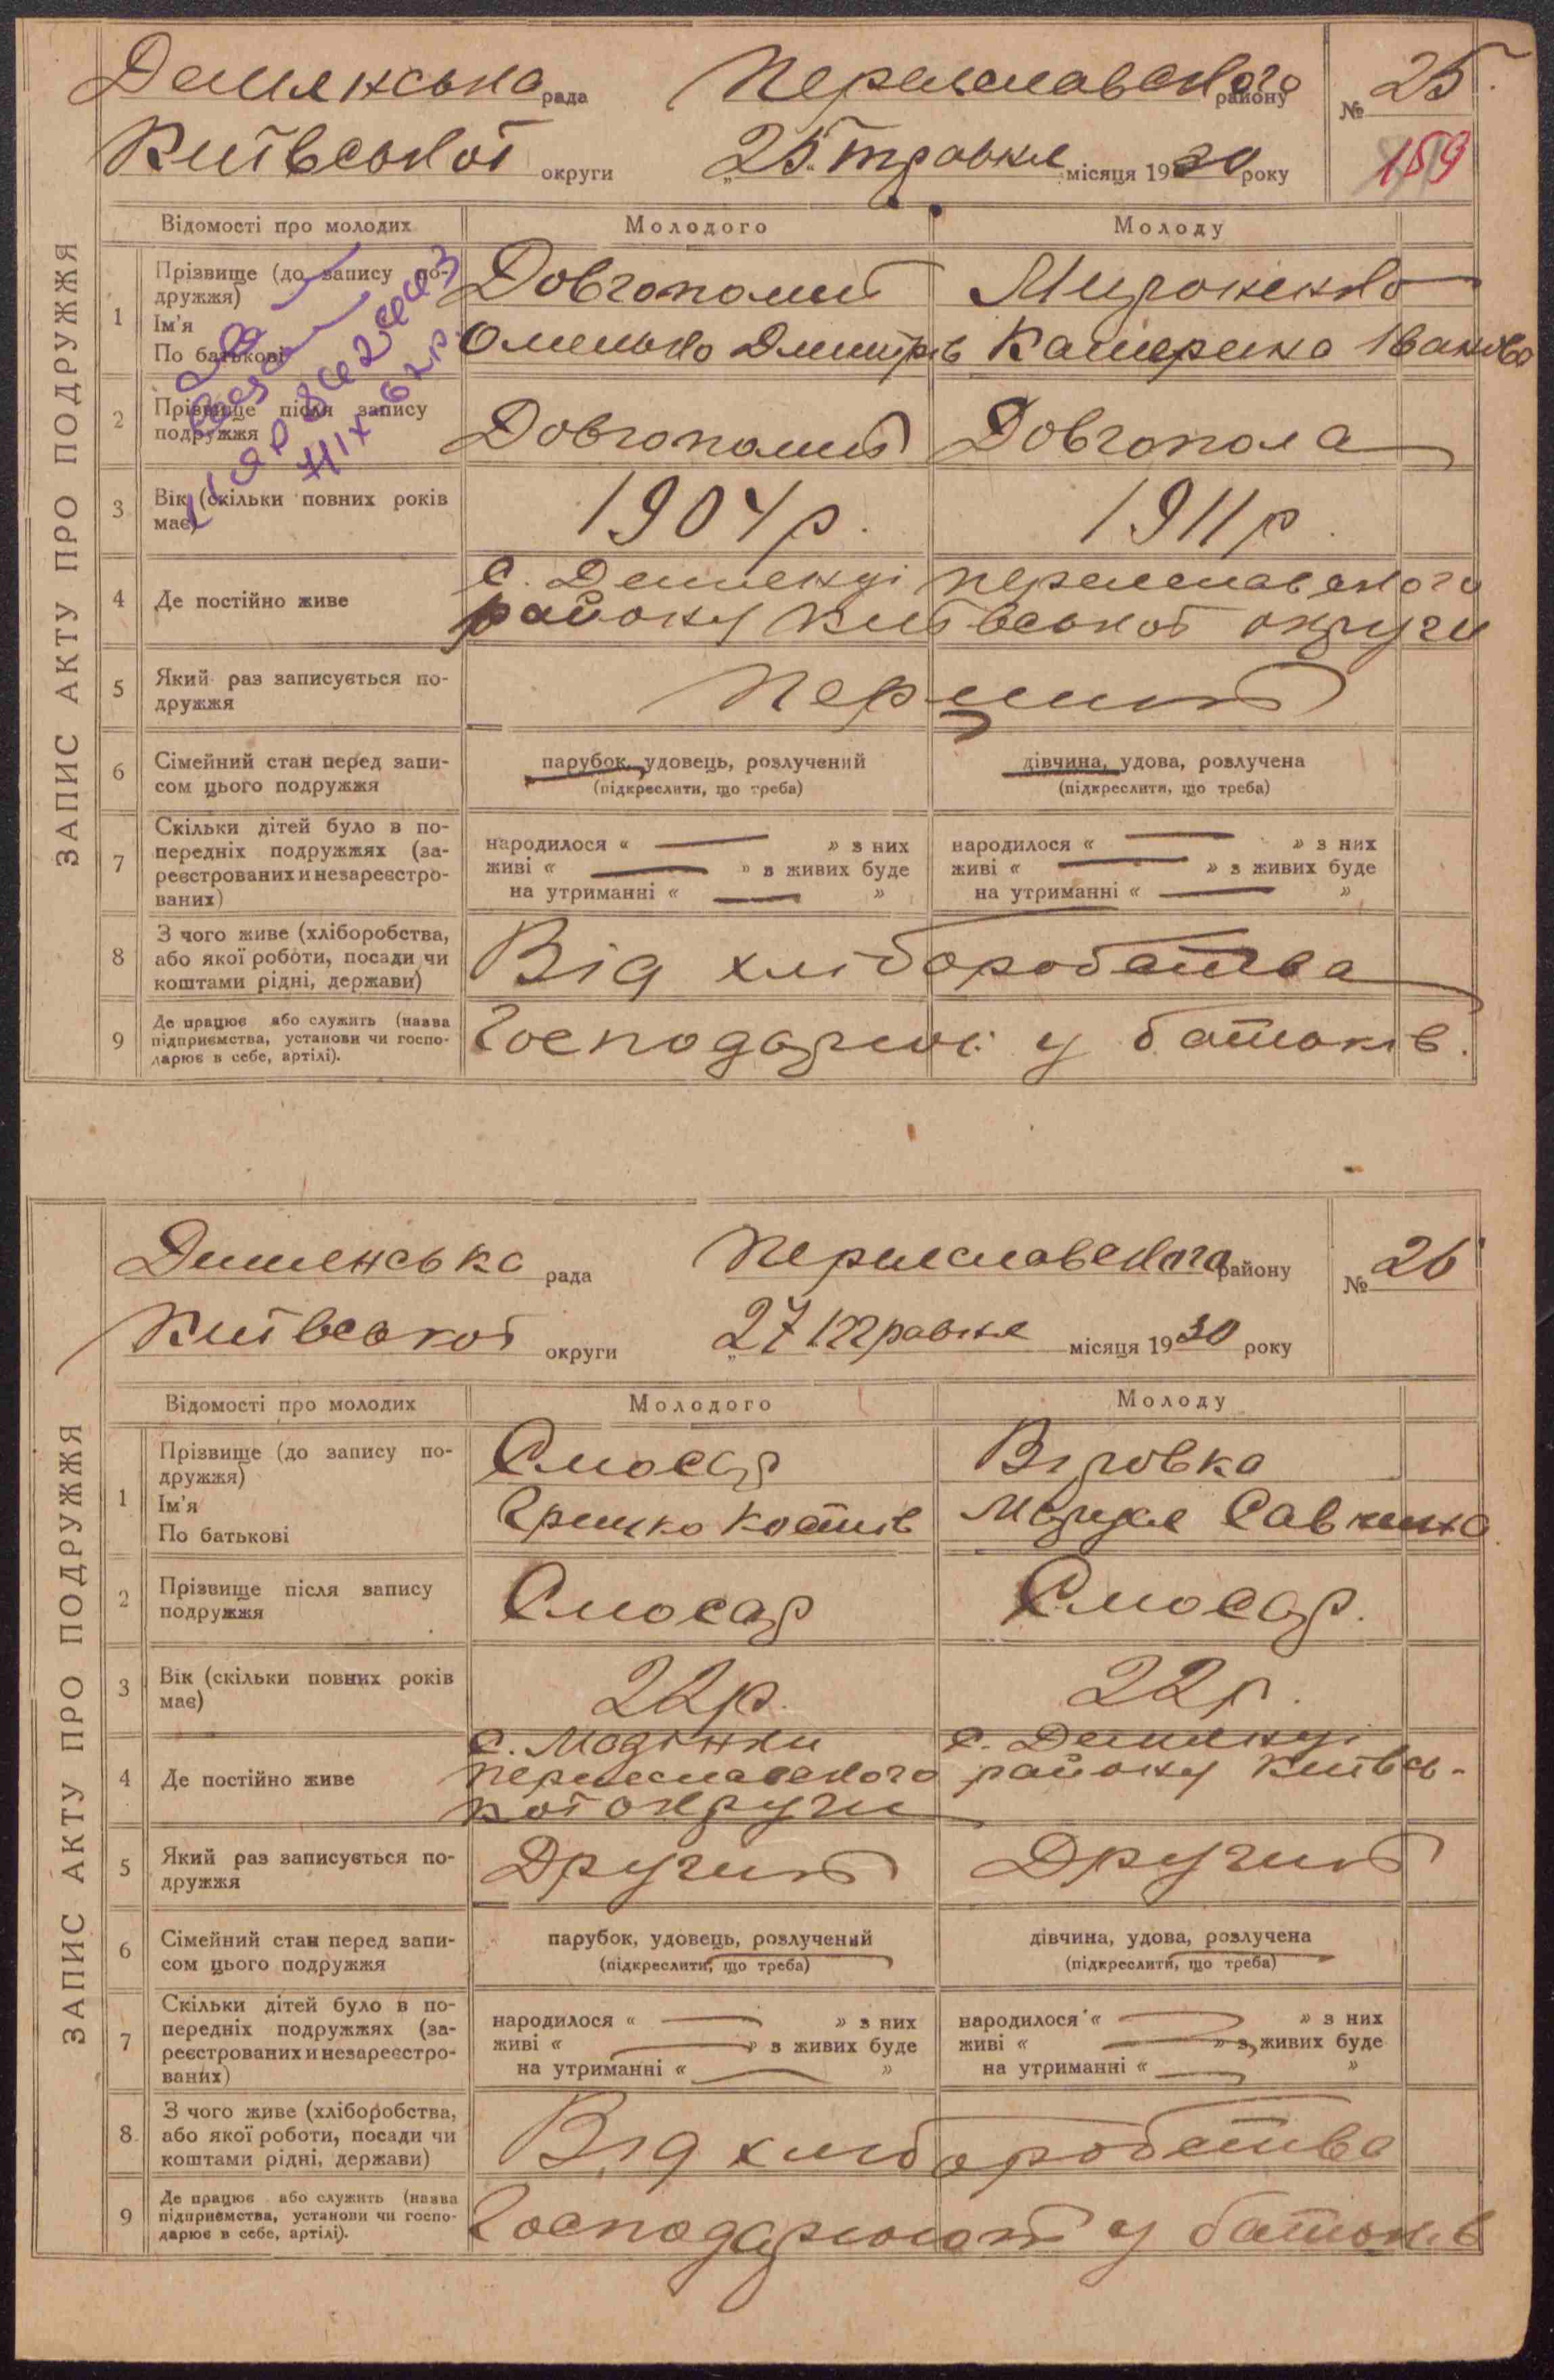 ЗАПИС АКТУ ПРО ПОДРУЖЖЯ
Демянська рада Переяславського району № 25.
Київської округи „25„ травня місяця 1930 року 159
Відомості про молодих Молодого Молоду
1 Прізвище (до запису подружжя) Довгополий Мироненко
Ім'я
По батькові Омелько Дмитрів Катерина Іванова
2 Прізвище після запису подружжя Довгополий Довгопола
3 Вік (скільки повних років має) 1904 р. 1911 р.
4 Де постійно живе с. Демянці Переяславського
району Київської округи
5 Який раз записується подружжя Перший
6 Сімейний стан перед записом цього подружжя парубок, удовець, розлучений дівчина, удова, розлучена
(підкреслити, що треба) (підкреслити, що треба)
7 Скільки дітей було в попередніх подружжях (зареєстрованих и незареєстрованих)
народилося « — » з них народилося « — » з них
живі « — » з живих буде живі « — » з живих буде
на утриманні « — » на утриманні « — »
8 З чого живе (хліборобства, або якої роботи, посади чи коштами рідні, держави) Від хліборобства
9 Де працює або служить (назва підприємства, установи чи господарює в себе, артілі). у батьків.
ЗАПИС АКТУ ПРО ПОДРУЖЖЯ
Демянська рада Переяславського району № 26
Київської округи „27 травня місяця 1930 року
Відомості про молодих Молодого Молоду
1 Прізвище (до запису подружжя) Слюсар Вірьовка
Ім'я
По батькові Грицько Костів Марія
2 Прізвище після запису подружжя Слюсар Слюсар.
3 Вік (скільки повних років має) 22 р. 22 р.
4 Де постійно живе с. с. Демянці
Переяславського району Київсь-
кої округи
5 Який раз записується подружжя Другий Другий
6 Сімейний стан перед записом цього подружжя парубок, удовець, розлучений дівчина, удова, розлучена
(підкреслити, що треба) (підкреслити, що треба)
7 Скільки дітей було в попередніх подружжях (зареєстрованих и незареєстрованих)
народилося « — » з них народилося « — » з них
живі « — » з живих буде живі « — » з живих буде
на утриманні « — » на утриманні « — »
8 З чого живе (хліборобства, або якої роботи, посади чи коштами рідні, держави) Від хліборобства
9 Де працює або служить (назва підприємства, установи чи господарює в себе, артілі). Господарюють у батьків